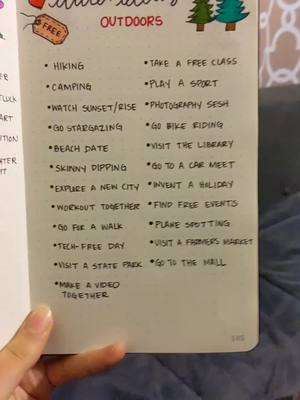 OUTDOORS
FREE
• HIKING
• CAMPING
• WATCH SUNSET/RISE
• GO STARGAZING
• BEACH DATE
• SKINNY DIPPING
• EXPLORE A NEW CITY
• WORKOUT TOGETHER
• GO FOR A WALK
• TECH-FREE DAY
• VISIT A STATE PARK
• MAKE A VIDEO
TOGETHER
• TAKE A FREE CLASS
• PLAY A SPORT
• PHOTOGRAPHY SESH
• GO BIKE RIDING
• VISIT THE LIBRARY
• GO TO A CAR MEET
• INVENT A HOLIDAY
• FIND FREE EVENTS
• PLANE SPOTTING
• VISIT A FARMERS MARKET
• GO TO THE MALL